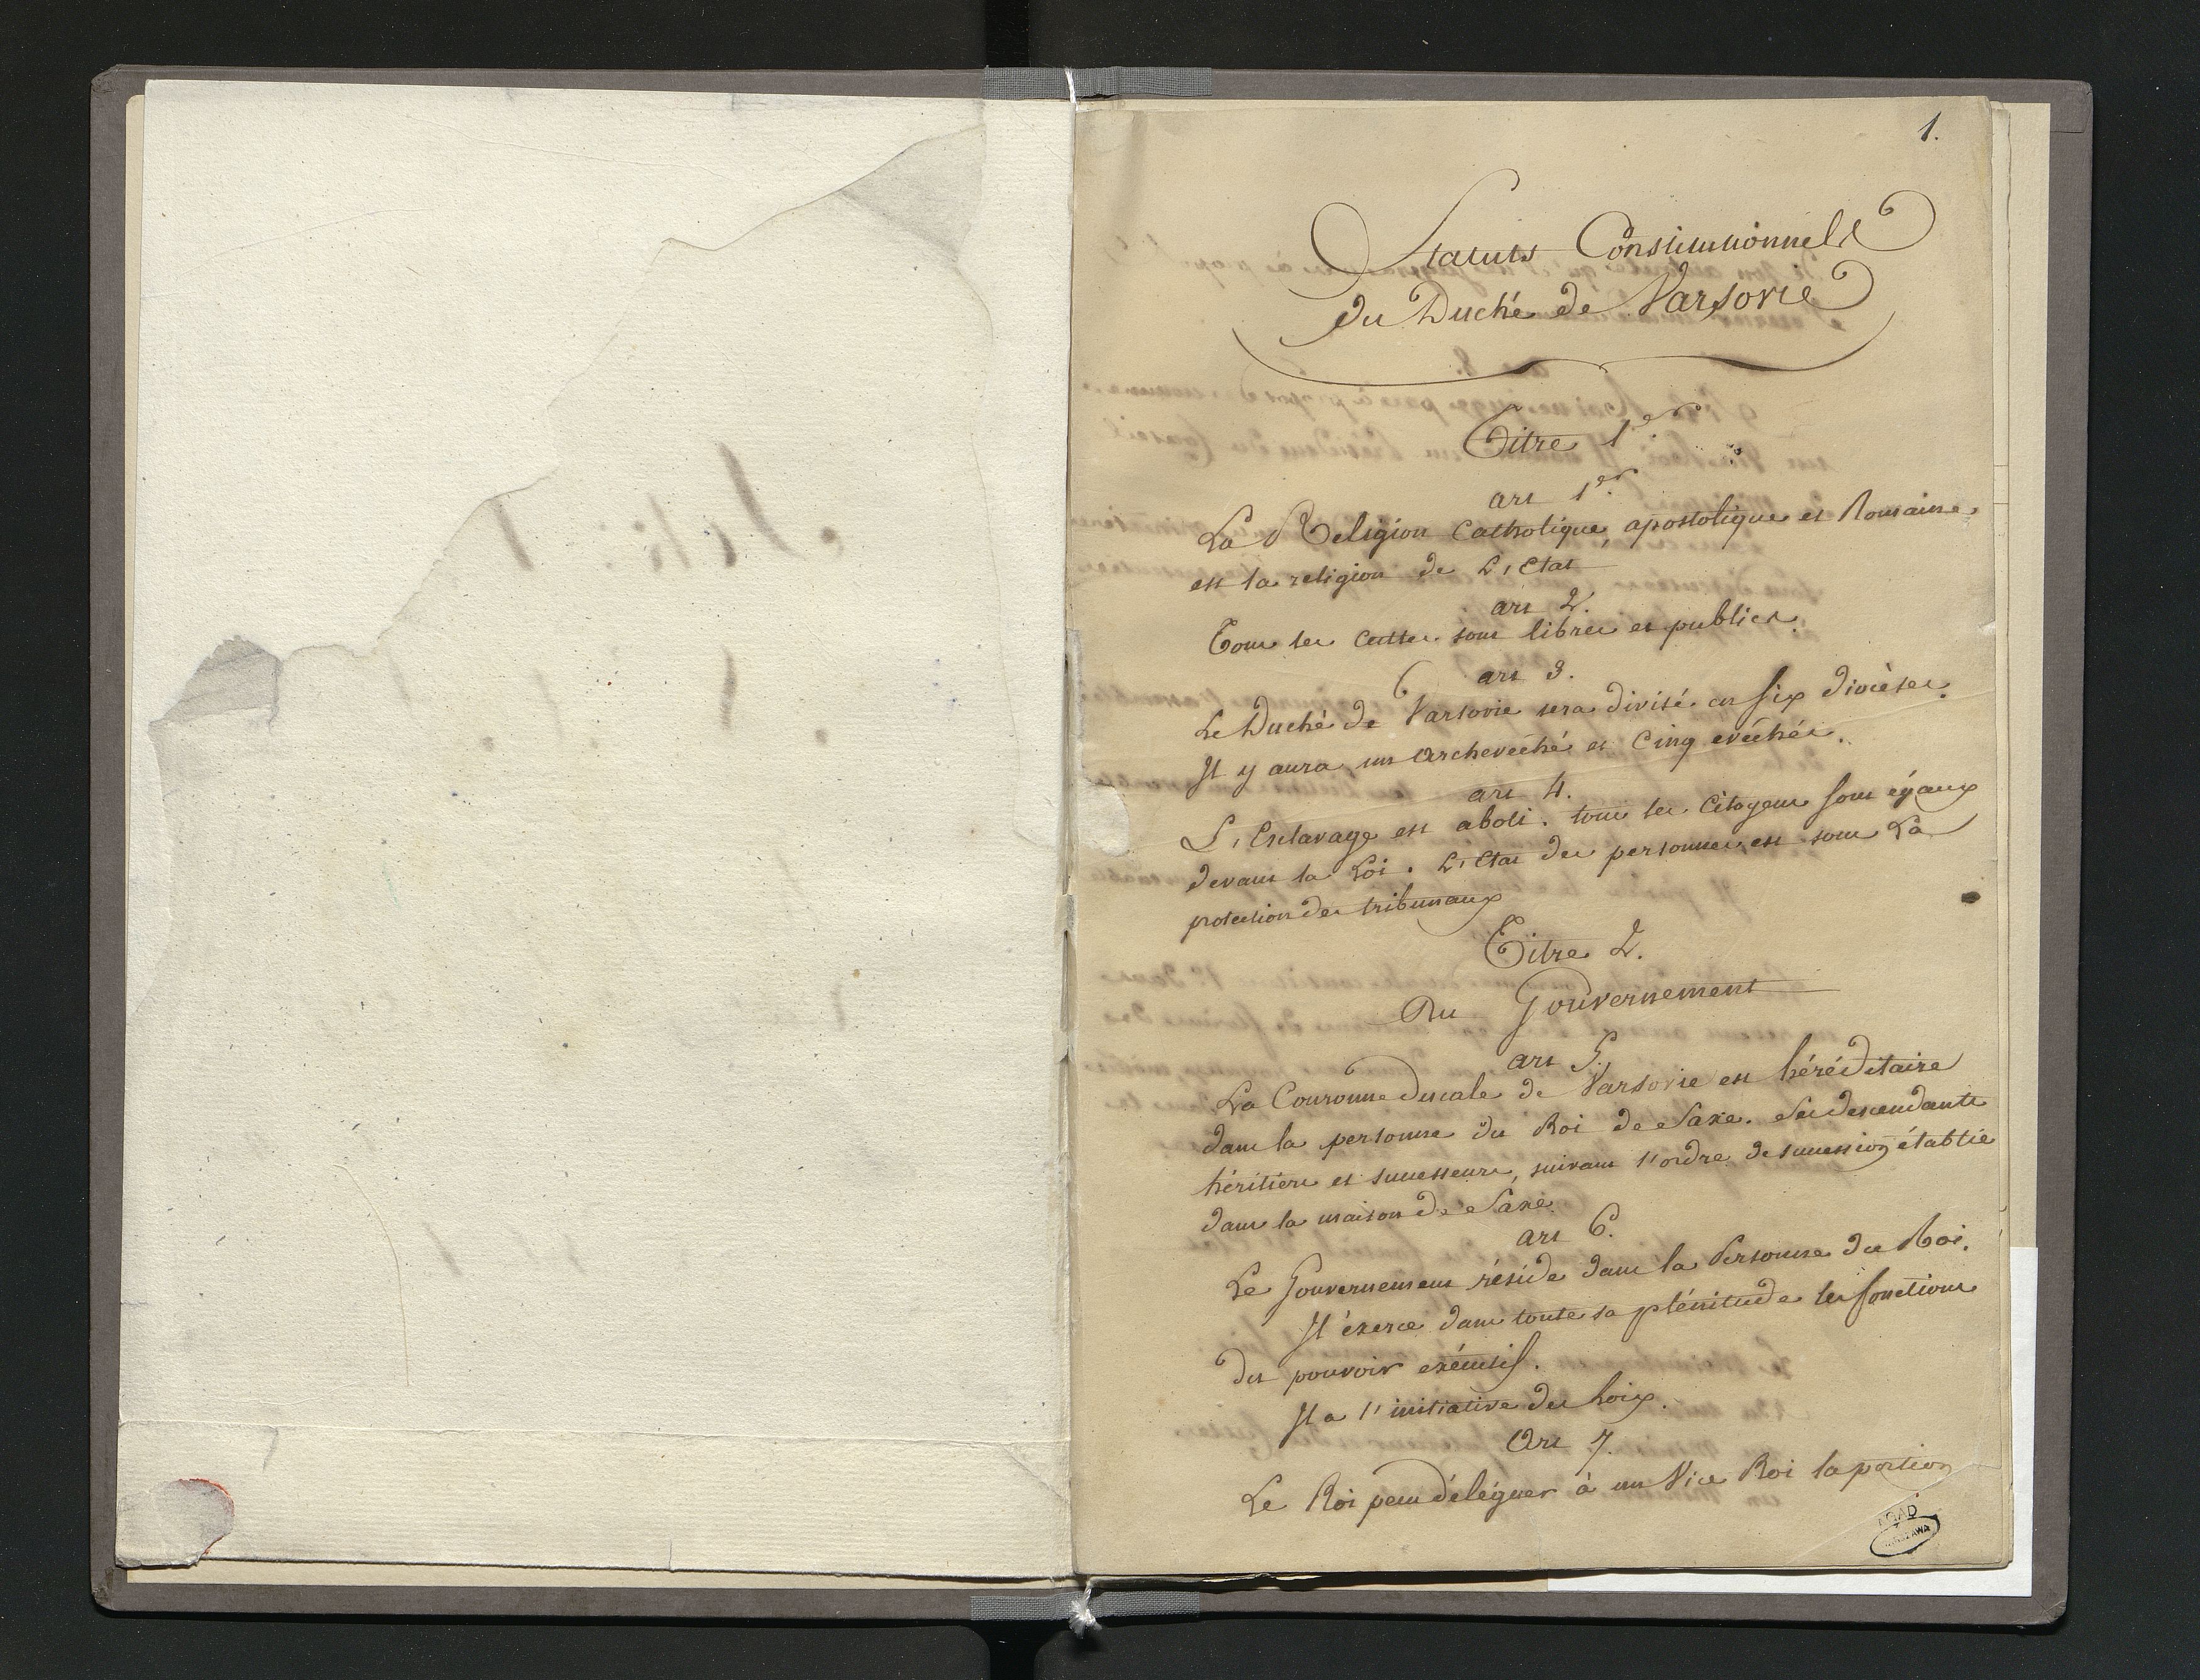 1.
Statuts Constitutionnels
du Duché de Varsovie
Titre 1er
art 1er
La Religion Catholique, apostolique et Romaine
est la religion de L'Etat
art 2.
Tous les cultes sont libres et publics.
art 3.
Le Duché de Varsovie sera divisé en six diocèses.
Il y aura un archevêché et cinq evêchés.
art 4.
L'Esclavage est aboli. tous les Citoyens sont égaux
devant la Loi. L'Etat des personnes est sous la
protection des tribunaux
Titre 2.
Du Gouvernement
art 5.
La Couronne ducale de Varsovie est héréditaire
dans la personne du Roi de Saxe. Ses descendants
héritiers et successeurs, suivant l'ordre de succession établie
dans la maison de Saxe.
art 6.
Le Gouvernement réside dans la Personne du Roi.
Il éxerce dans toute sa plénitude les fonctions
du pouvoir exécutif.
Il a l'initiative des Loix.
Art 7.
Le Roi peut déléguer à un Vice Roi la portion
AGAD
WARSZAWA